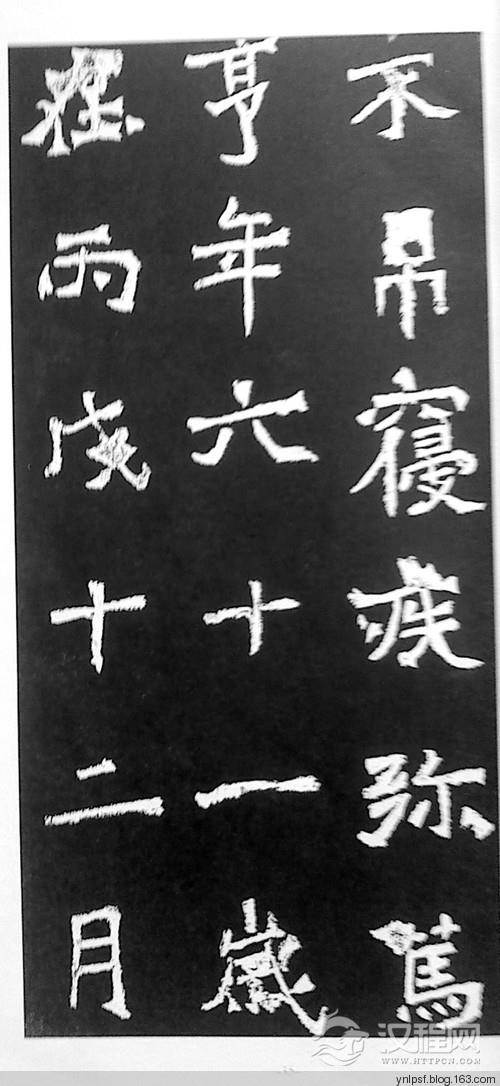 不吊寢疾弥篤
亨年六十一歲
丙戌十二月
汉程网
HTTPCN.COM
ynlpsf.blog.163.com